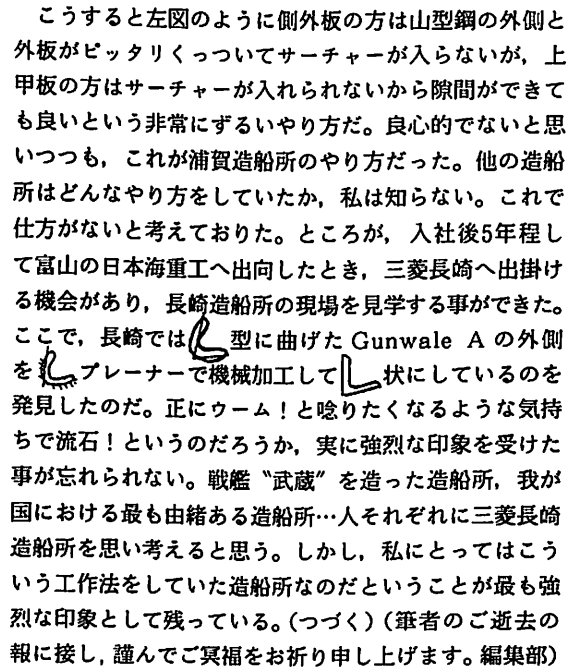 こうすると左図のように側外板の方は山型鋼の外側と
外板がピッタリくっついてサーチャーが入らないが，上
甲板の方はサーチャーが入れられないから隙間ができて
も良いという非常にずるいやり方だ。良心的でないと思
いつつも，これが浦賀造船所のやり方だった。他の造船
所はどんなやり方をしていたか，私は知らない。これで
仕方がないと考えておりた。ところが，入社後5年程し
て富山の日本海重工へ出向したとき，三菱長崎へ出掛け
る機会があり，長崎造船所の現場を見学する事ができた。
ここで，長崎では型に曲げた Gunwale A の外側
をプレーナーで機械加工して状にしているのを
発見したのだ。正にウーム！と唸りたくなるような気持
ちで流石！というのだろうか，実に強烈な印象を受けた
事が忘れられない。戦艦〝武蔵〟を造った造船所，我が
国における最も由緒ある造船所…人それぞれに三菱長崎
造船所を思い考えると思う。しかし，私にとってはこう
いう工作法をしていた造船所なのだということが最も強
烈な印象として残っている。（つづく）（筆者のご逝去の
報に接し，謹んでご冥福をお祈り申し上げます。編集部）